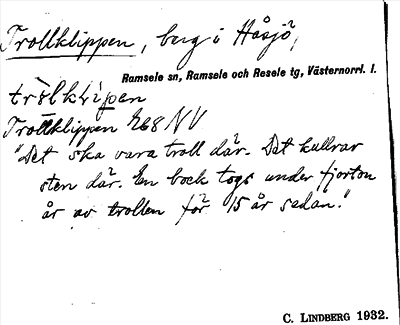 Trollklippen, berg i Håsjö,
Ramsele sn, Ramsele och Resele tg, Västernorrl. l.
Trollklippen 268 NV
"Det ska vara troll där. Det kullrar
sten där. En bock togs under fjorton
år av trollen för 15 år sedan."
C. LINDBERG 1932.